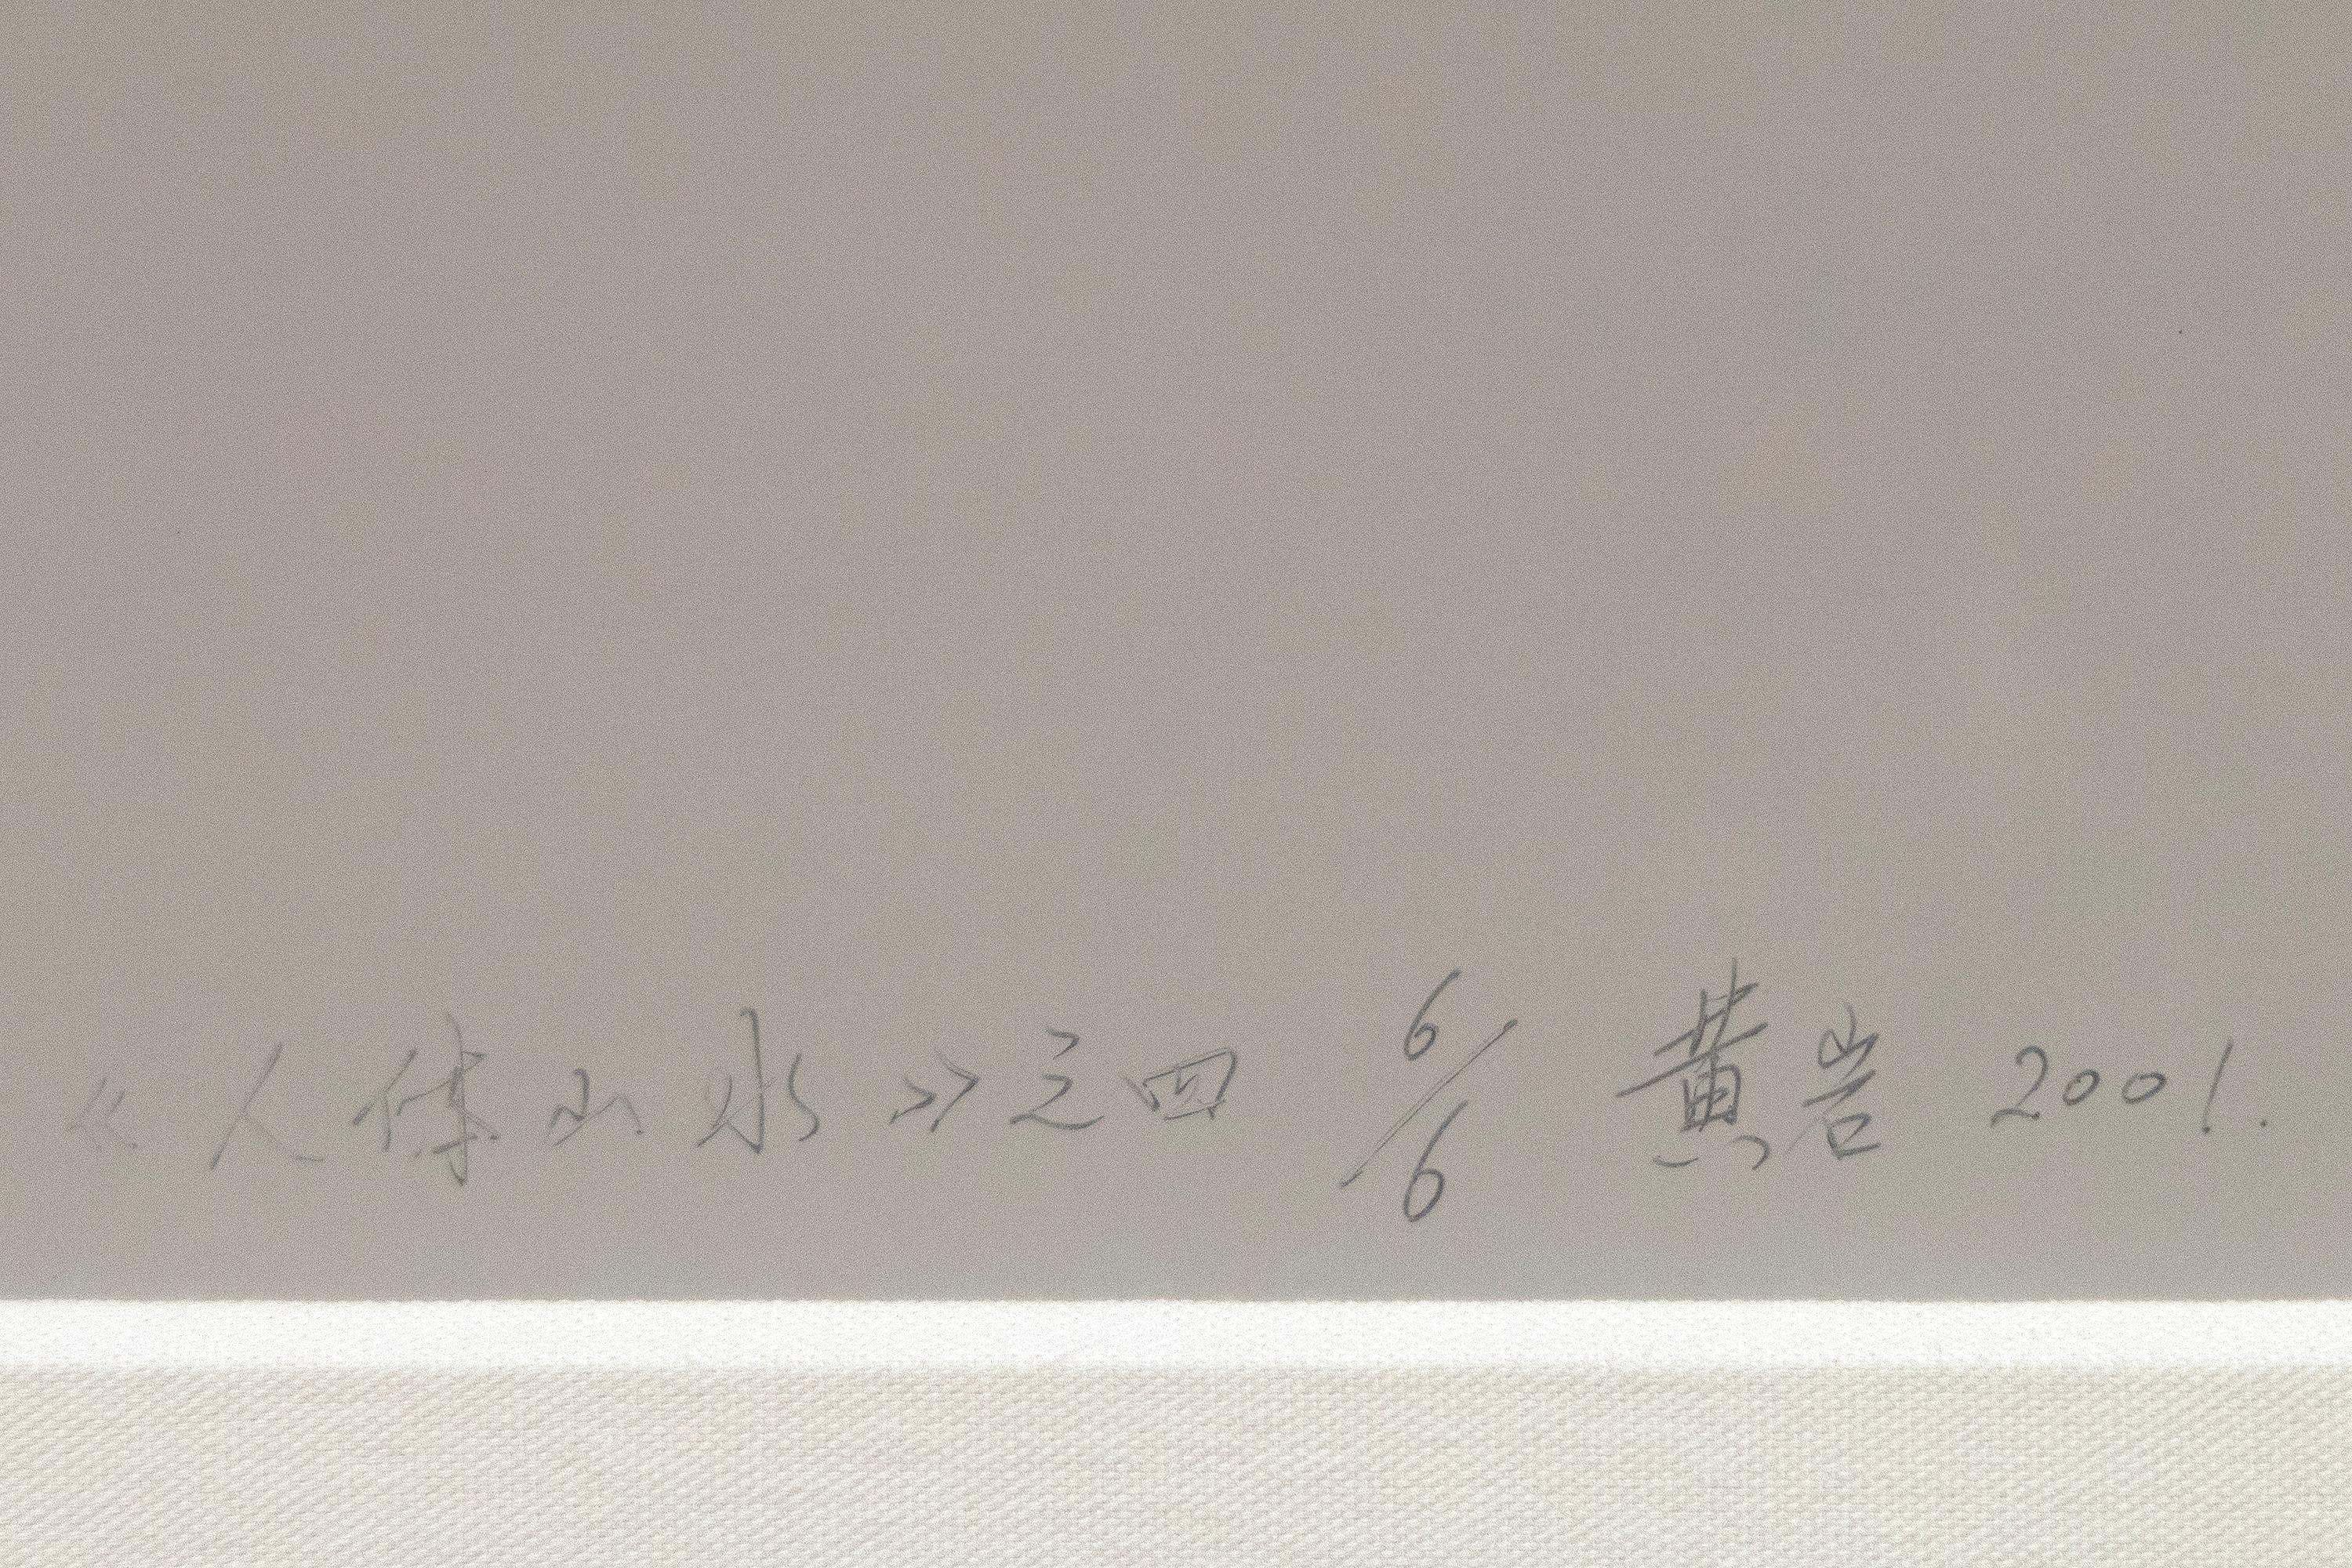 《人体山水》之四 6/6 黄岩 2001.